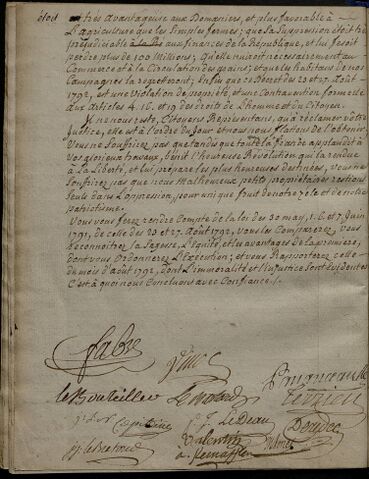 étoit très avantageuse aux Domaniers, et plus favorable à
L'agriculture que les simples fermes; que la Suppression étoit
préjudiciable à la fois aux finances de la République, et lui fesoit
perdre plus de 100 Millions; Qu'elle nuiroit necessairement au
Commerce et à la Circulation des grains; et que les habitans de nos
Campagnes la regrettroient; Enfin que ce Decret des 23 et 27 Août
1792, est une violation de propriété, et une Contravention formelle
aux articles 4. 16. et 19 des droits de L'homme et du Citoyen.
Il ne nous reste, Citoyens Representans, qu'à réclamer votre
Justice, elle est à l'ordre du Jour et nous nous flattons de l'obtenir.
Vous ne Souffrirez pas que tandis que toute la france applaudit à
vos glorieux travaux, benit l'heureuse Révolution qui la rendue
à La Liberté, et lui prepare les plus heureuses destinées, vous ne
Souffrirez pas que nous Malheureux, petits propriétaires restions
Seuls dans L'oppression, pour unique fruit de notre zele et de notre
patriotisme.
Vous vous ferez rendre Compte de la loi des 30 may, 1. 6. et 7 Juin
1791, de celle des 23 et 27 Août 1792, vous les Comparerez, vous
reconnoitrez la Sagesse, L'équité, et les avantages de la premiere,
dont vous Ordonnerez L'Exécution; et vous Rapporterez celle
du mois d'aout 1792, dont L'immoralité et l'injustice Sont Evidentes
C'est à quoi nous Concluons avec Confiance./.
fabre
le Bouteiller
Le Deau
valentin